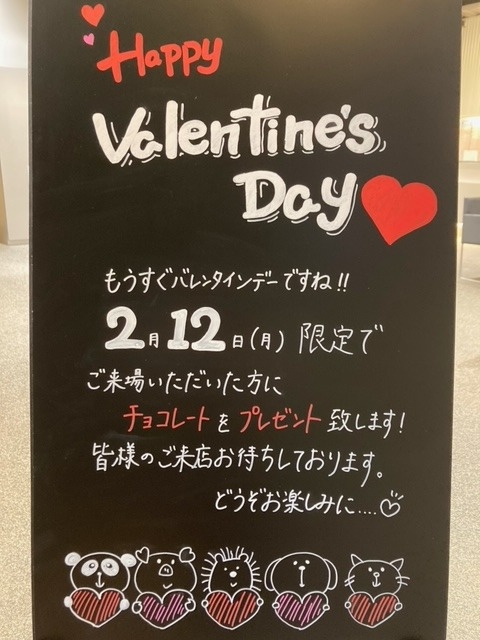 Happy
Valentine's
Day
もうすぐバレンタインデーですね!!
2月12日(月) 限定で
ご来場いただいた方に
チョコレートをプレゼント致します!
皆様のご来店お待ちしております。
どうぞお楽しみに....